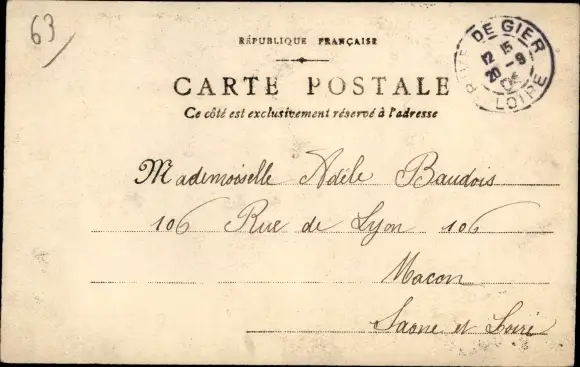 63
RÉPUBLIQUE FRANÇAISE
CARTE POSTALE
Ce côté est exclusivement réservé à l'adresse
RIVE DE GIER
12 15
20 - 9
LOIRE
Mademoiselle Adèle Baudois
106 Rue de Lyon 106
Macon
Saone et Loire